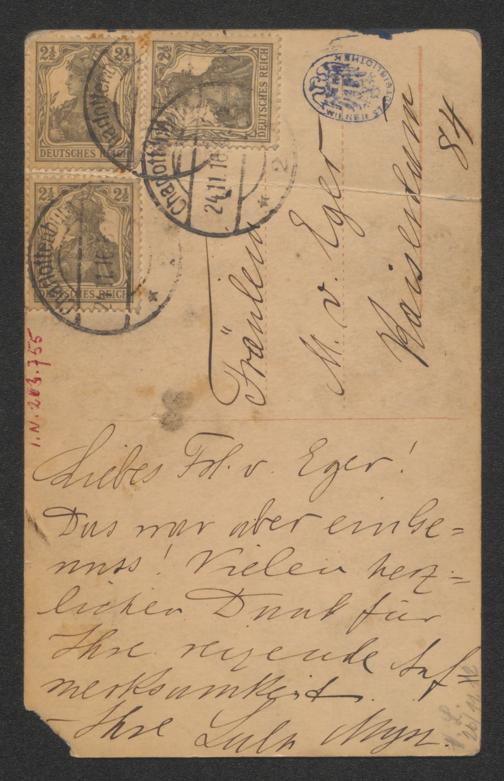 2½ 2½
DEUTSCHES REICH
2½
DEUTSCHES REICH
2½ 2½
DEUTSCHES REICH
Charlottenburg
24.11.16
* 2 *
Charlottenburg
WIENER
I.N. 203.755
Fräulein
M. v. Eger
Kaiserdamm
84
Liebes Frl. v. Eger!
Das war aber ein Ge=
nuss! Vielen herz=
lichen Dank für
Ihre reizende Auf=
merksamkeit.
– Ihre Lula